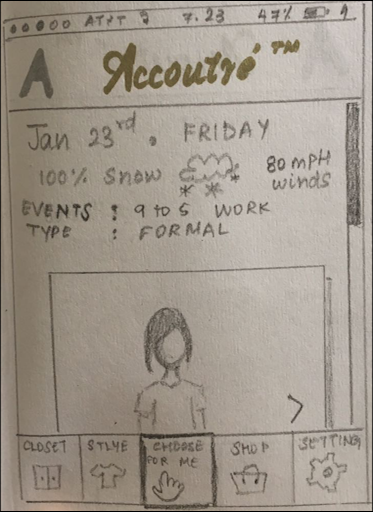 AT&T 7.23 47%
A Accoutré™
Jan 23rd. FRIDAY
100% Snow 80 mpH
winds
EVENTS : 9 to 5 WORK
TYPE : FORMAL
CLOSET STLYE CHOOSE FOR ME SHOP SETTING